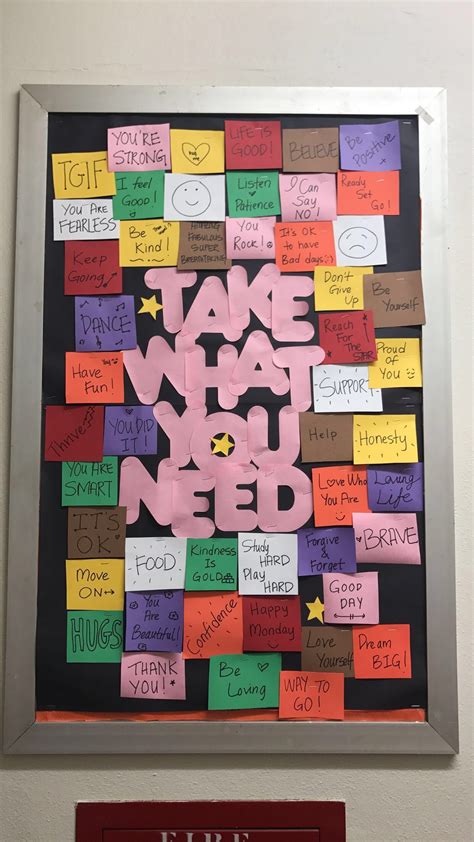 YOU'RE
STRONG!
LIFE IS
GOOD!
BELIEVE
Be
Positive
TGIF
I feel
Good!
Listen
Patience
I Can
Say
NO!
Ready
Set
Go!
You ARE
FEARLESS
Be
Kind!
FABULOUS
SUPER
You
Rock!
It's OK
to have
Bad days:)
Keep
Going
Don't
Give
Up
Be
Yourself
TAKE
WHAT
YOU
NEED
DANCE
Reach
For
The
STAR
Proud
of
You
Have
Fun!
SUPPORT
Thrive
YOU DID
IT!
Help
Honesty
YOU ARE
SMART
Love Who
You Are
Life
IT'S
OK
BRAVE
FOOD
Kindness
Is
GOLD
Study
HARD
Play
HARD
Forgive
&
Forget
Move
ON
You Are
Beautiful!
Confidence
Happy
Monday
GOOD
DAY
HUGS
Love
Yourself
Dream
BIG!
THANK
YOU!
Be
Loving
WAY TO
GO!
FIRE